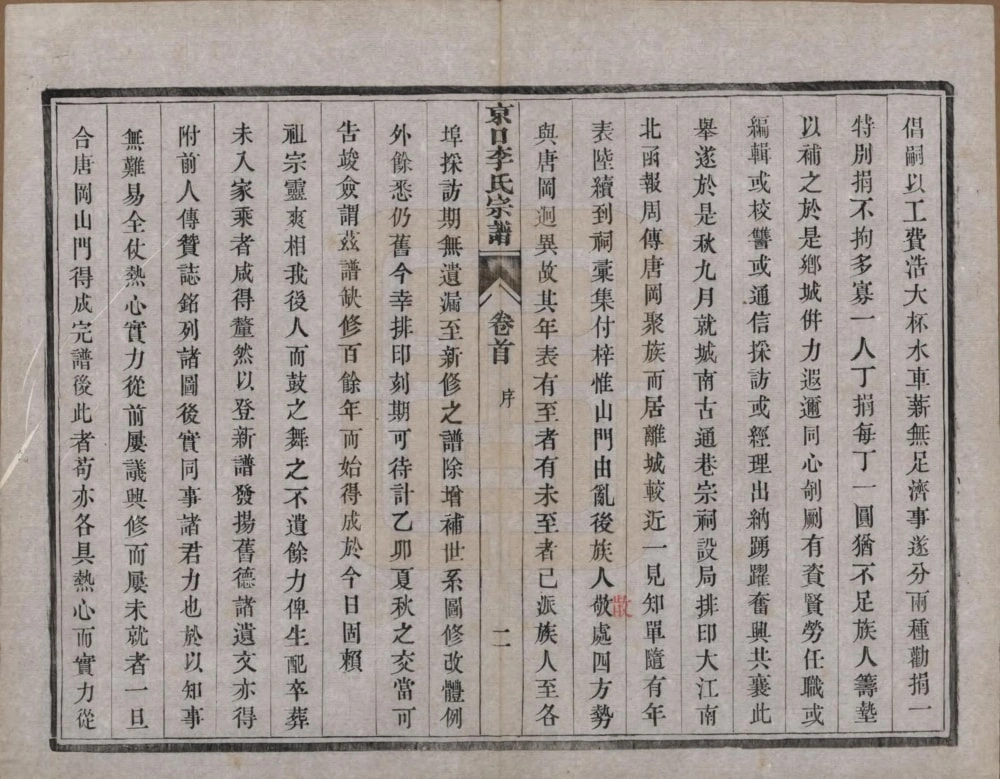 倡嗣以工費浩大杯水車薪無足濟事遂分兩種勸捐一
特別捐不拘多寡一人丁捐每丁一圓猶不足族人籌墊
以補之於是鄉城併力遐邇同心剞劂有資賢勞任職或
編輯或校讐或通信採訪或經理出納踴躍奮興共襄此
舉遂於是秋九月就城南古通巷宗祠設局排印大江南
北函報周傳唐岡聚族而居離城較近一見知單隨有年
表陸續到祠彚集付梓惟山門由亂後族人敬處四方勢
散
與唐岡迥異故其年表有至者有未至者已派族人至各
京口李氏宗譜 卷首 序 二
埠採訪期無遺漏至新修之譜除增補世系圖修改體例
外餘悉仍舊今幸排印刻期可待計乙卯夏秋之交當可
告竣僉謂茲譜缺修百餘年而始得成於今日固賴
祖宗靈爽相我後人而鼓之舞之不遺餘力俾生配卒葬
未入家乘者咸得釐然以登新譜發揚舊德諸遺文亦得
附前人傳贊誌銘列諸圖後實同事諸君力也於以知事
無難易全仗熱心實力從前屢議興修而屢未就者一旦
合唐岡山門得成完譜後此者苟亦各具熱心而實力從